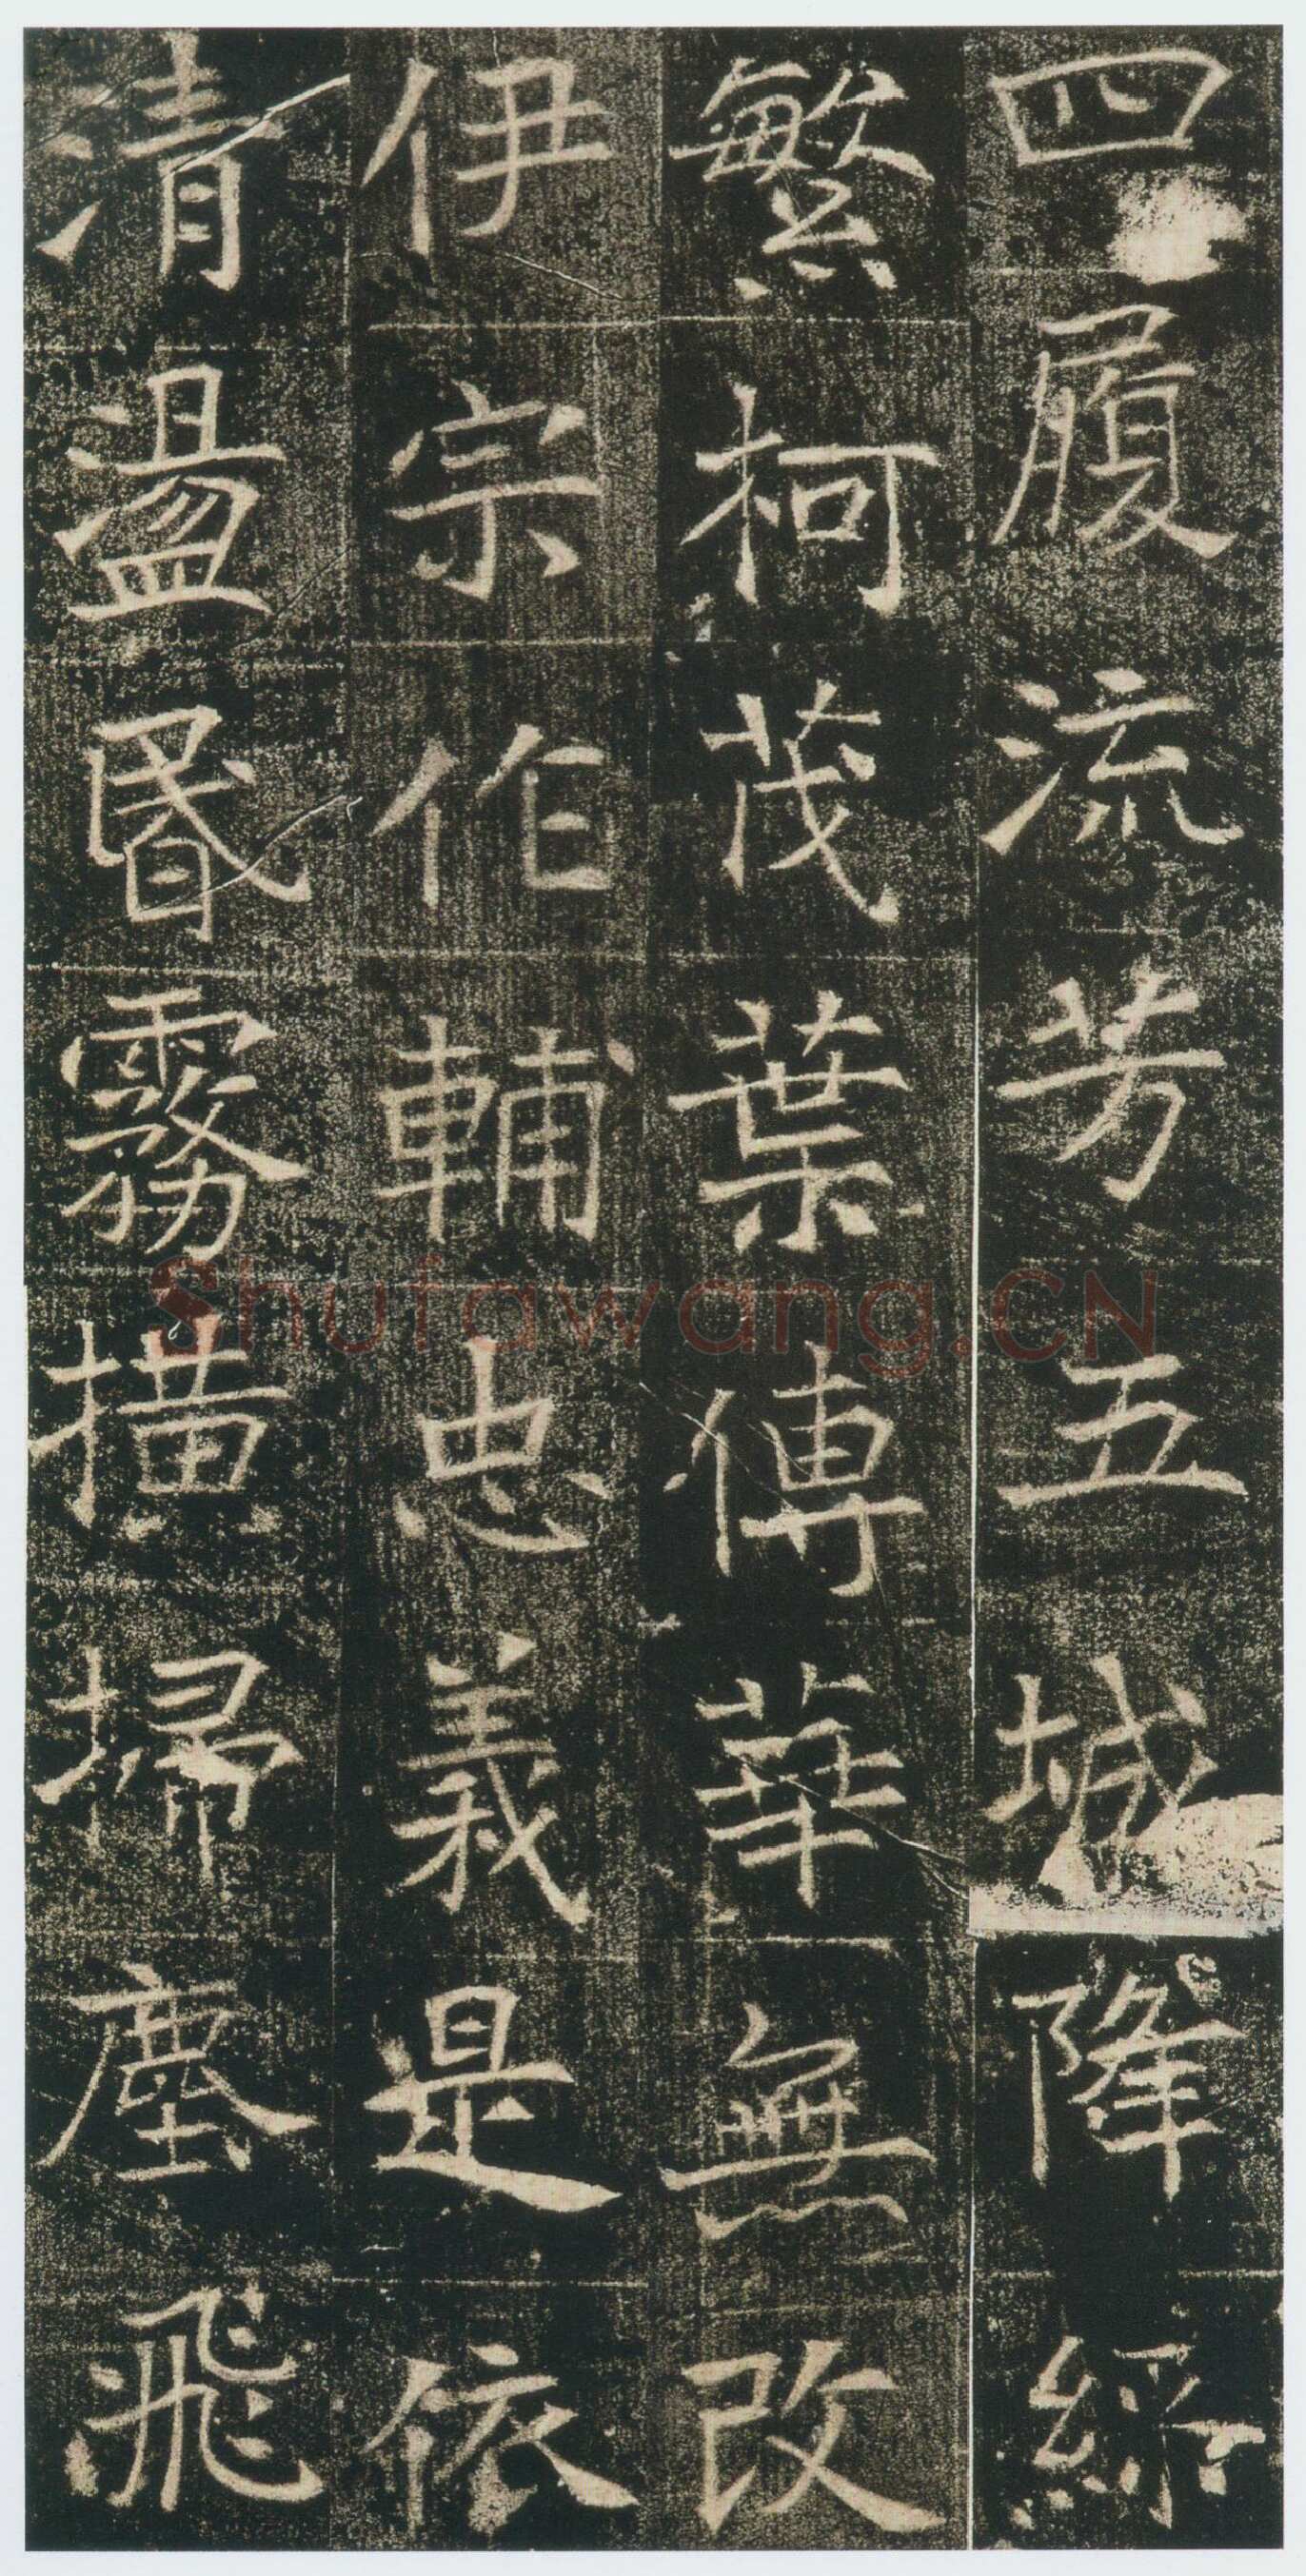 四履流芳五城降綵
繁柯茂葉傳華無改
伊宗作輔忠義是依
清盪昬霧撗埽塵飛
Shufawang.CN